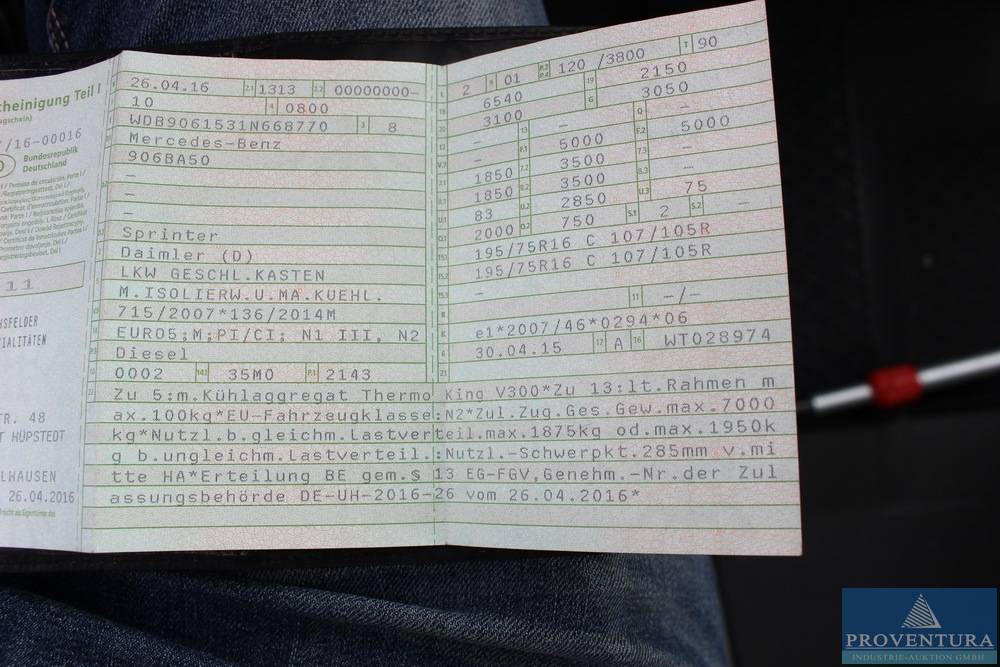 cheinigung Teil I
/16-00016
Bundesrepublik
Deutschland
11
TR. 48
T HÜPSTEDT
LHAUSEN
26.04.2016
26.04.16 2.1 1313 2.2 00000000-
10 4 0800
WDB9061531N668770 3 8
Mercedes-Benz
906BA50
–
–
–
Sprinter
Daimler (D)
LKW GESCHL.KASTEN
M.ISOLIERW.U.MA.KUEHL.
715/2007*136/2014M
EURO5;M;PI/CI; N1 III, N2
Diesel
0002 14.1 35M0 P.1 2143
L 2 9 01 P.2 P.4 120 /3800 T 90
18 6540 19 2150
20 3100 G 3050
12 – 13 – Q –
V.7 – F.1 5000 F.2 5000
7.1 1850 7.2 3500 7.3 –
8.1 1850 8.2 3500 8.3 –
U.1 83 U.2 2850 U.3 75
O.1 2000 O.2 750 S.1 2 S.2 –
15.1 195/75R16 C 107/105R
15.2 195/75R16 C 107/105R
15.3 –
R 11 –/–
K e1*2007/46*0294*06
6 30.04.15 17 A 16 WT028974
21
22 Zu 5:m.Kühlaggregat Thermo King V300*Zu 13:lt.Rahmen m
ax.100kg*EU-Fahrzeugklasse:N2*Zul.Zug.Ges.Gew.max.7000
kg*Nutzl.b.gleichm.Lastverteil.max.1875kg od.max.1950k
g b.ungleichm.Lastverteil.:Nutzl.-Schwerpkt.285mm v.mi
tte HA*Erteilung BE gem.§ 13 EG-FGV,Genehm.-Nr.der Zul
assungsbehörde DE-UH-2016-26 vom 26.04.2016*
PROVENTURA
INDUSTRIE-AUKTION GMBH